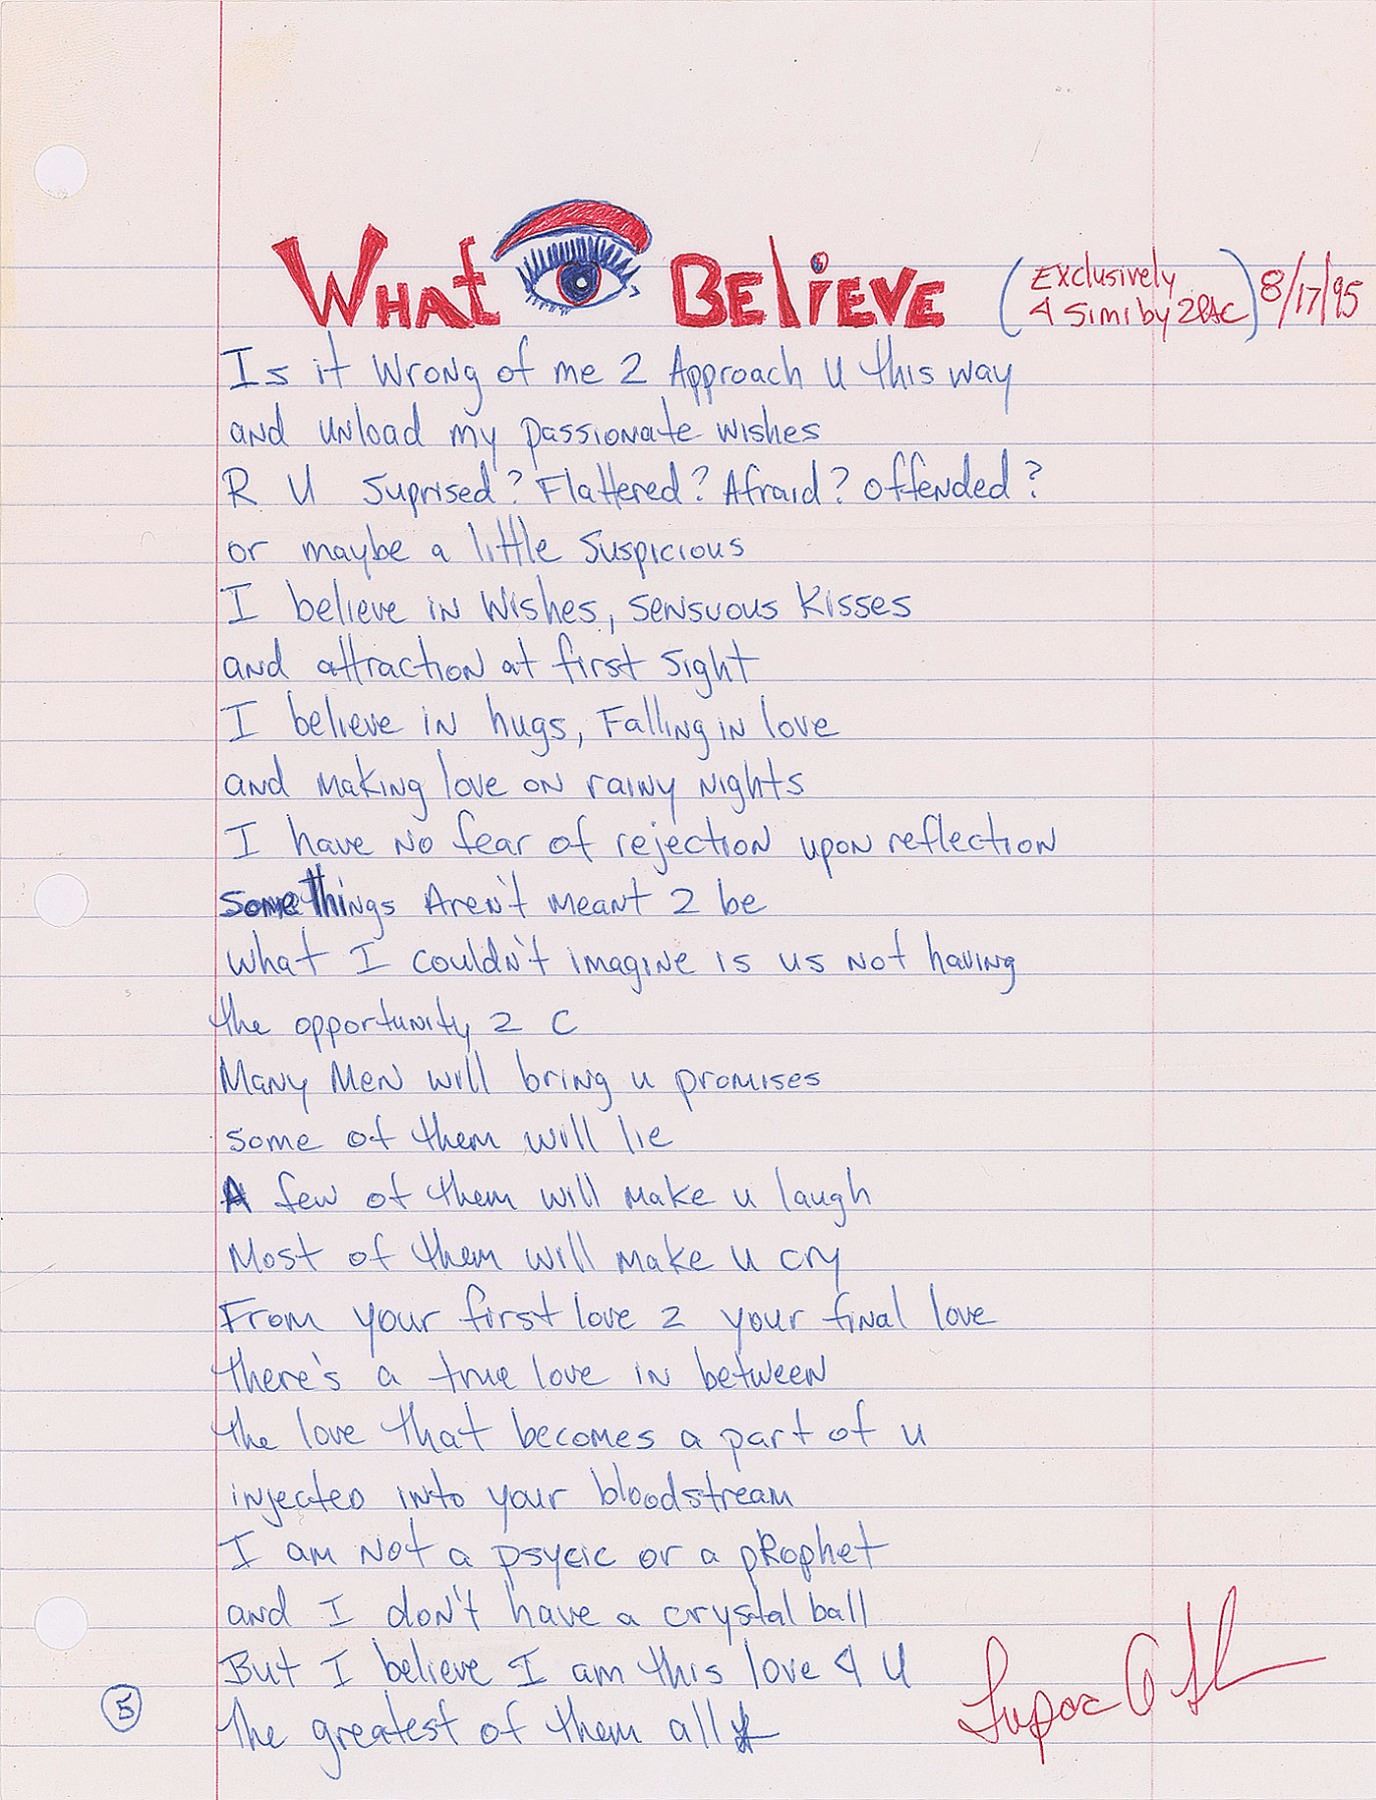 What Believe (Exclusively
4 Simi by 2PAC) 8/17/95
Is it Wrong of me 2 Approach U this way
and unload my passionate wishes
R U Suprised? Flattered? Afraid? offended?
or maybe a little suspicious
I believe in wishes, sensuous kisses
and attraction at first sight
I believe in hugs, Falling in love
and making love on rainy nights
I have no fear of rejection upon reflection
some things Aren't meant 2 be
what I couldn't imagine is us not having
the opportunity 2 C
Many Men will bring u promises
some of them will lie
A few of them will make u laugh
Most of them will make u cry
From your first love 2 your final love
there's a true love in between
the love that becomes a part of u
injected into your bloodstream
I am not a psycic or a prophet
and I don't have a crystal ball
But I believe I am this love 4 U
5
The greatest of them all
Tupac A Sh